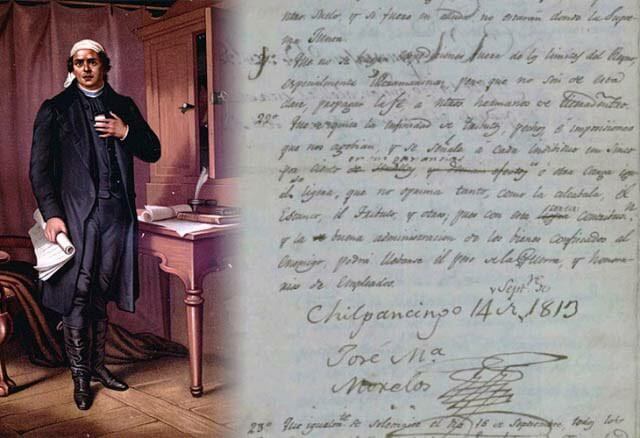 tra suelo, y si fuere en alguna no estarán donde la Supre
ma Junta.
21º Que no se hagan expediciones fuera de los limites del Reyno,
especialmente Ultramarinas, pero que no son de esta
clase, propagar la fé a nuestros hermanos de tierradentro.
22º Que se quite la infinidad de tributos, pechos é imposiciones
que nos agobian, y se señale a cada individuo un cinco
por ciento en sus ganancias u otra carga igual
ligera, que no oprima tanto, como la alcabala, el
Estanco, el Tributo, y otros, pues con esta
y la buena administracion de los bienes confiscados al
Enemigo, podrá llevarse el peso de la Guerra, y honora
rios de Empleados.
Chilpancingo 14 de Septre de 1813
José Mª
Morelos
23º Que igualmte se solemnice el dia 16 de Septiembre, todos los